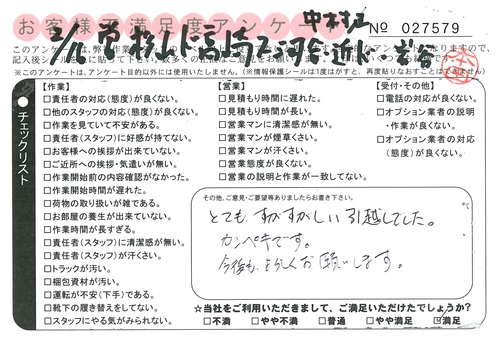 お客様満足度アンケ
No 027579
このアンケートは、弊
※このアンケートは、アンケート目的以外には使用いたしません。(※情報保護シールは1度はがすと、再度貼りなおすことはできません)
チェックリスト
【作業】
□責任者の対応(態度)が良くない。
□他のスタッフの対応(態度)が良くない。
□作業を見ていて不安がある。
□責任者(スタッフ)に好感が持てない。
□お客様への挨拶が出来ていない。
□ご近所への挨拶・気遣いが無い。
□作業開始前の内容確認がなかった。
□作業開始時間が遅れた。
□荷物の取り扱いが雑である。
□お部屋の養生が出来ていない。
□作業時間が長すぎる。
□責任者(スタッフ)に清潔感が無い。
□責任者(スタッフ)が汗くさい。
□トラックが汚い。
□梱包資材が汚い。
□運転が不安(下手)である。
□靴下の履き替えをしてない。
□スタッフにやる気がみられない。
【営業】
□見積もり時間に遅れた。
□見積もり時間が長い。
□営業マンに清潔感が無い。
□営業マンが煙草くさい。
□営業マンが汗くさい。
□営業態度が良くない。
□営業の説明と作業が一致してない。
【受付・その他】
□電話の対応が良くない。
□オプション業者の説明・作業が良くない。
□オプション業者の対応(態度)が良くない。
その他、ご意見・ご要望等ありましたらお書き下さい。
とても すがすがしい 引越でした。
カンペキです。
今後も よろしくお願いします。
☆当社をご利用いただきまして、ご満足いただけたでしょうか?
□不満 □やや不満 □普通 □やや満足 ☑満足